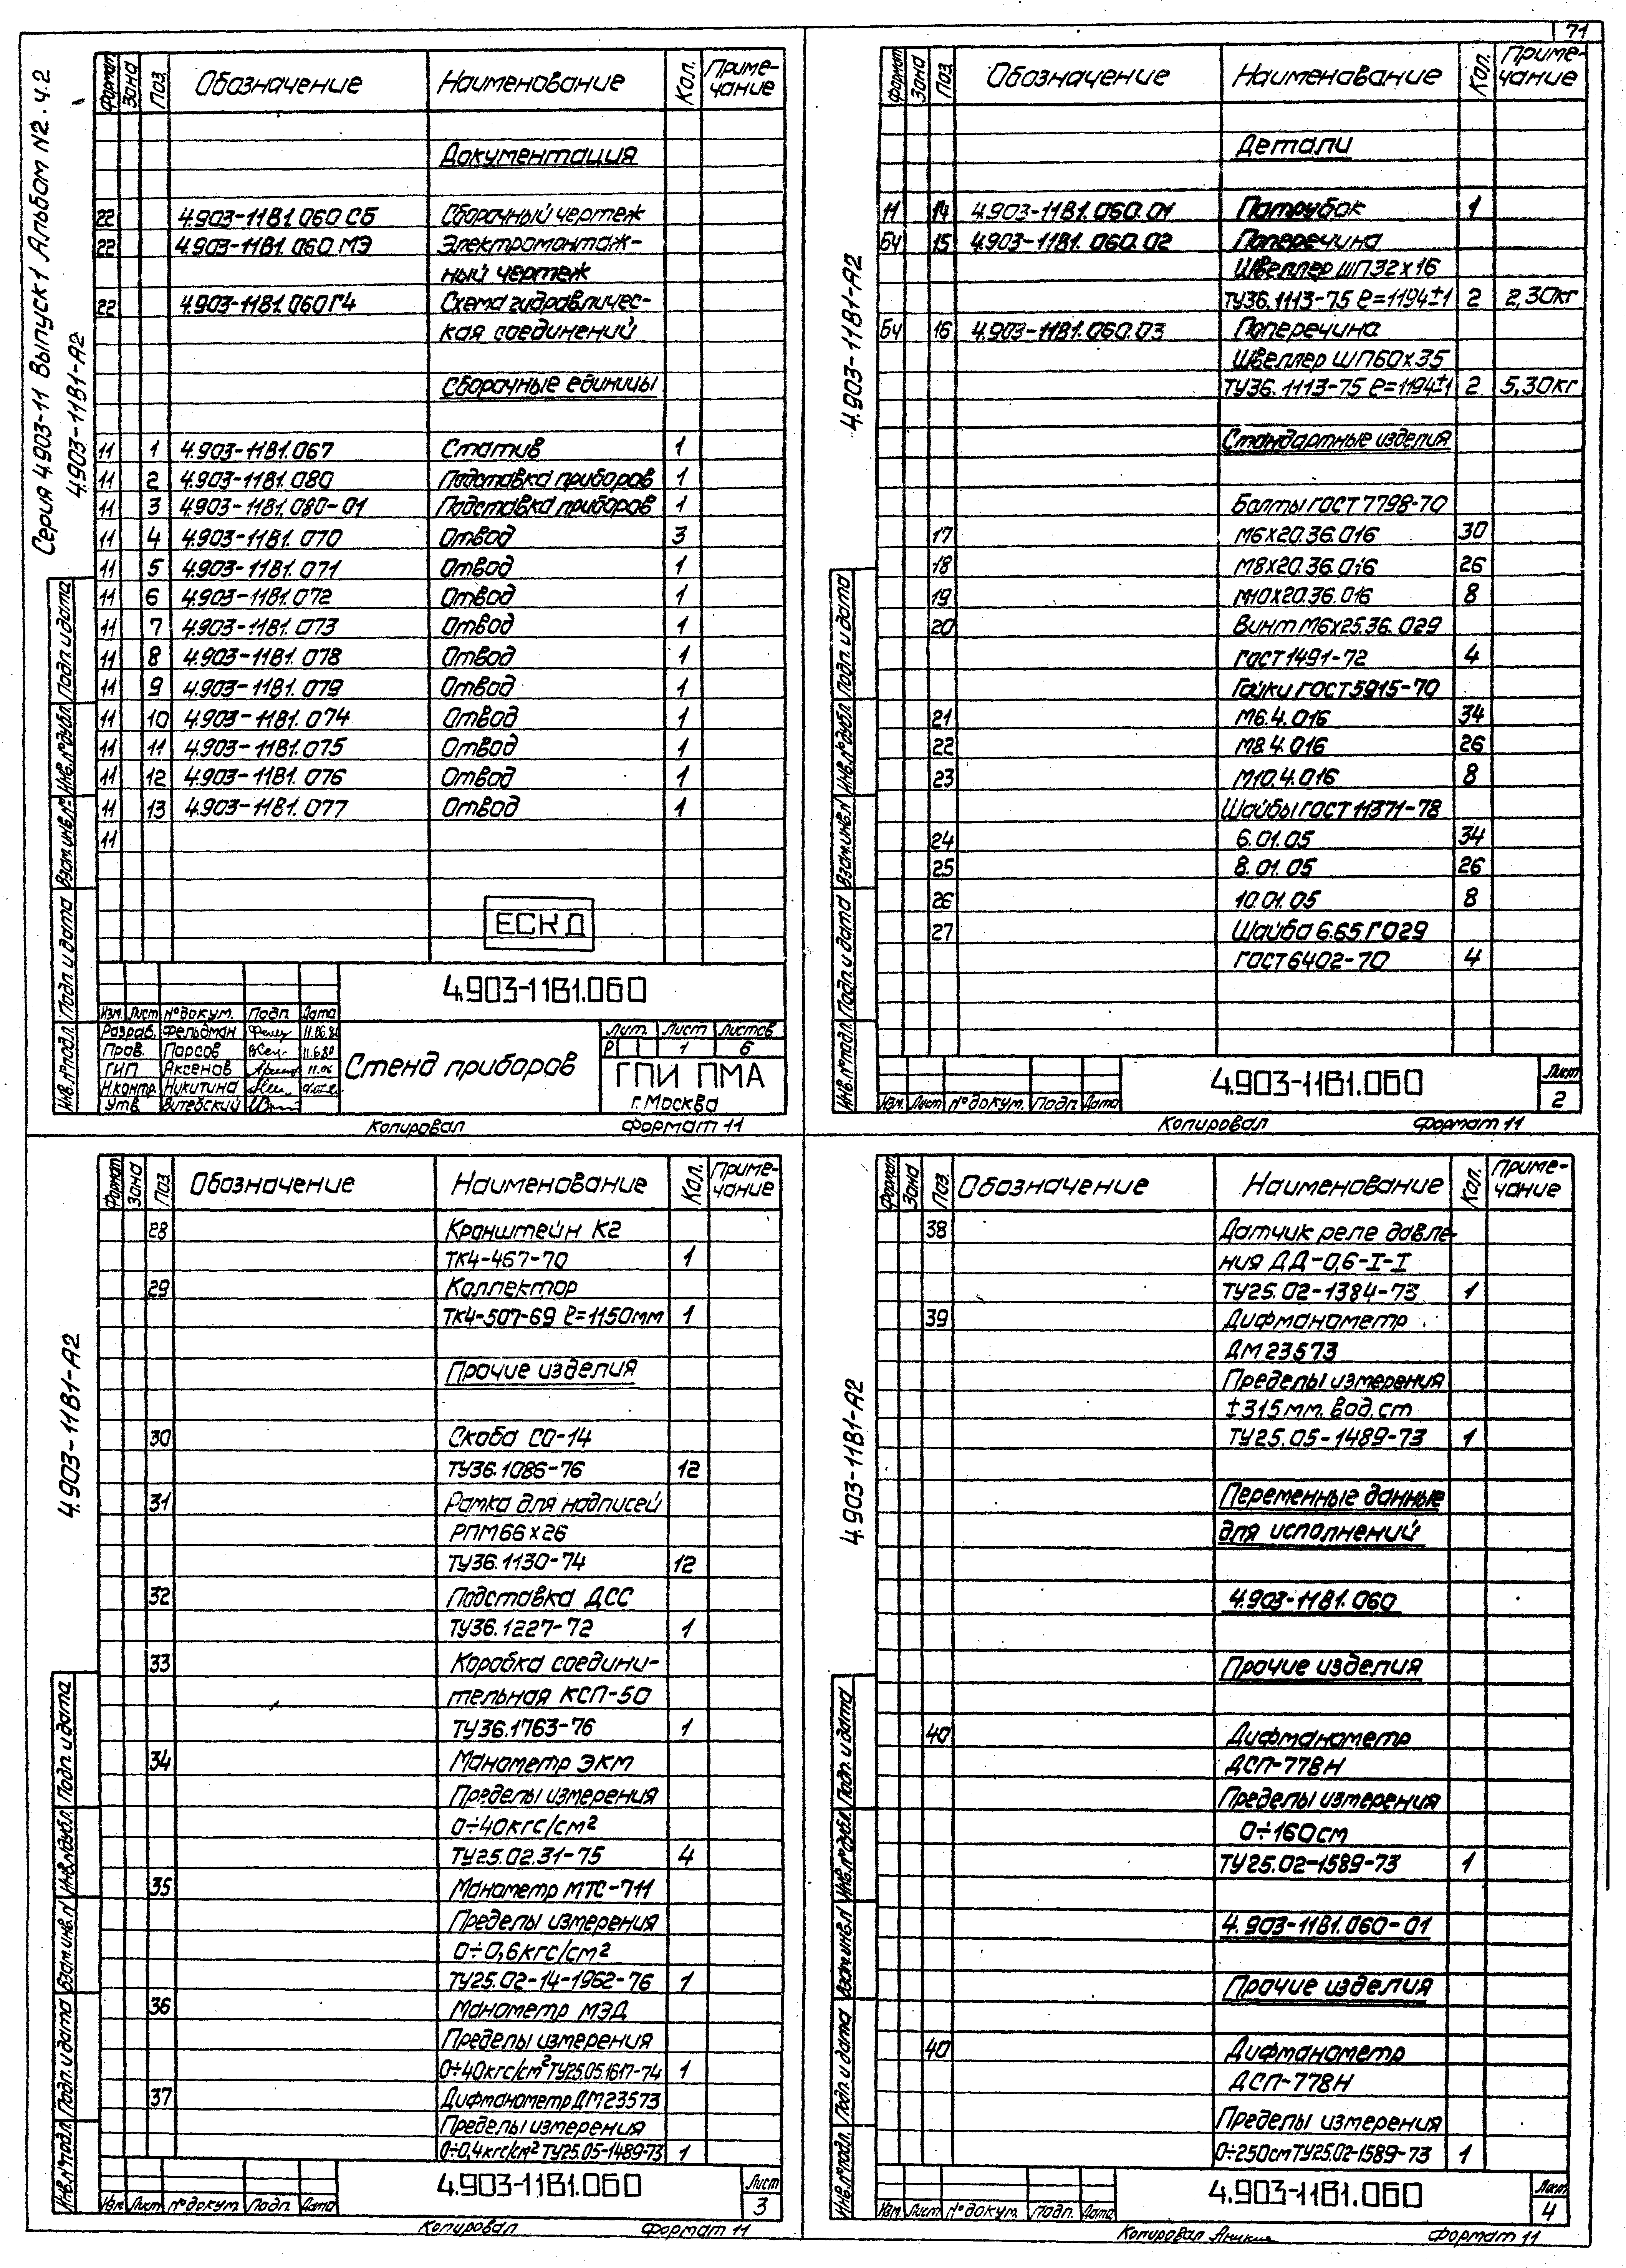 71
Серия 4.903-11 Выпуск 1 Альбом N2. ч.2
4.903-11В1-А2
Формат Зона Поз. Обозначение Наименование Кол. Приме-
чание
Документация
22 4.903-11В1.060 СБ Сборочный чертеж
22 4.903-11В1.060 МЭ Электромонтаж-
ный чертеж
22 4.903-11В1.060Г4 Схема гидравличес-
кая соединений
Сборочные единицы
11 1 4.903-11В1.067 Статив 1
11 2 4.903-11В1.080 Подставка приборов 1
11 3 4.903-11В1.080-01 Подставка приборов 1
11 4 4.903-11В1.070 Отвод 3
11 5 4.903-11В1.071 Отвод 1
11 6 4.903-11В1.072 Отвод 1
11 7 4.903-11В1.073 Отвод 1
11 8 4.903-11В1.078 Отвод 1
11 9 4.903-11В1.079 Отвод 1
11 10 4.903-11В1.074 Отвод 1
11 11 4.903-11В1.075 Отвод 1
11 12 4.903-11В1.076 Отвод 1
11 13 4.903-11В1.077 Отвод 1
11
ЕСКД
Инв.№подл. Подп. и дата Взам.инв.№ Инв.№дубл. Подп. и дата
4.903-11В1.060
Изм. Лист №докум. Подп. Дата
Разраб. Фельдман 11.06.80
Пров. Парсов 11.6.80
ГИП Аксенов 11.06
Н.контр. Никитина
Утв. Витебский
Стенд приборов
Лит. Лист Листов
Р 1 6
ГПИ ПМА
г. Москва
Копировал Формат 11
4.903-11В1-А2
Формат Зона Поз. Обозначение Наименование Кол. Приме-
чание
Детали
11 14 4.903-11В1.060.01 Патрубок 1
БЧ 15 4.903-11В1.060.02 Поперечина
Швеллер ШП32х16
ТУ36.1113-75 ℓ=1194±1 2 2,30кг
БЧ 16 4.903-11В1.060.03 Поперечина
Швеллер ШП60х35
ТУ36.1113-75 ℓ=1194±1 2 5,30кг
Стандартные изделия
Болты ГОСТ 7798-70
17 М6х20.36.016 30
18 М8х20.36.016 26
19 М10х20.36.016 8
20 Винт М6х25.36.029
ГОСТ 1491-72 4
Гайки ГОСТ 5915-70
21 М6.4.016 34
22 М8.4.016 26
23 М10.4.016 8
Шайбы ГОСТ 11371-78
24 6.01.05 34
25 8.01.05 26
26 10.01.05 8
27 Шайба 6.65Г029
ГОСТ 6402-70 4
Инв.№подл. Подп. и дата Взам.инв.№ Инв.№дубл. Подп. и дата
Изм. Лист №докум. Подп. Дата
4.903-11В1.060
Лист
2
Копировал Формат 11
4.903-11В1-А2
Формат Зона Поз. Обозначение Наименование Кол. Приме-
чание
28 Кронштейн К2
ТК4-467-70 1
29 Коллектор
ТК4-507-69 ℓ=1150мм 1
Прочие изделия
30 Скоба СО-14
ТУ36.1086-76 12
31 Рамка для надписей
РПМ66х26
ТУ36.1130-74 12
32 Подставка ДСС
ТУ36.1227-72 1
33 Коробка соедини-
тельная КСП-50
ТУ36.1763-76 1
34 Манометр ЭКМ
Пределы измерения
0÷40кгс/см²
ТУ25.02.31-75 4
35 Манометр МТС-711
Пределы измерения
0÷0,6кгс/см²
ТУ25.02-14-1962-76 1
36 Манометр МЭД
Пределы измерения
0÷40кгс/см² ТУ25.05.1617-74 1
37 Дифманометр ДМ23573
Пределы измерения
0÷0,4кгс/см² ТУ25.05-1489-73 1
Инв.№подл. Подп. и дата Взам.инв.№ Инв.№дубл. Подп. и дата
Изм. Лист №докум. Подп. Дата
4.903-11В1.060
Лист
3
Копировал Формат 11
4.903-11В1-А2
Формат Зона Поз. Обозначение Наименование Кол. Приме-
чание
38 Датчик реле давле-
ния ДД-0,6-I-I
ТУ25.02-1384-73 1
39 Дифманометр
ДМ 23573
Пределы измерения
±315мм. вод. ст
ТУ25.05-1489-73 1
Переменные данные
для исполнений
4.903-11В1.060
Прочие изделия
40 Дифманометр
ДСП-778Н
Пределы измерения
0÷160см
ТУ25.02-1589-73 1
4.903-11В1.060-01
Прочие изделия
40 Дифманометр
ДСП-778Н
Пределы измерения
0÷250см ТУ25.02-1589-73 1
Инв.№подл. Подп. и дата Взам.инв.№ Инв.№дубл. Подп. и дата
Изм. Лист №докум. Подп. Дата
4.903-11В1.060
Лист
4
Копировал Формат 11